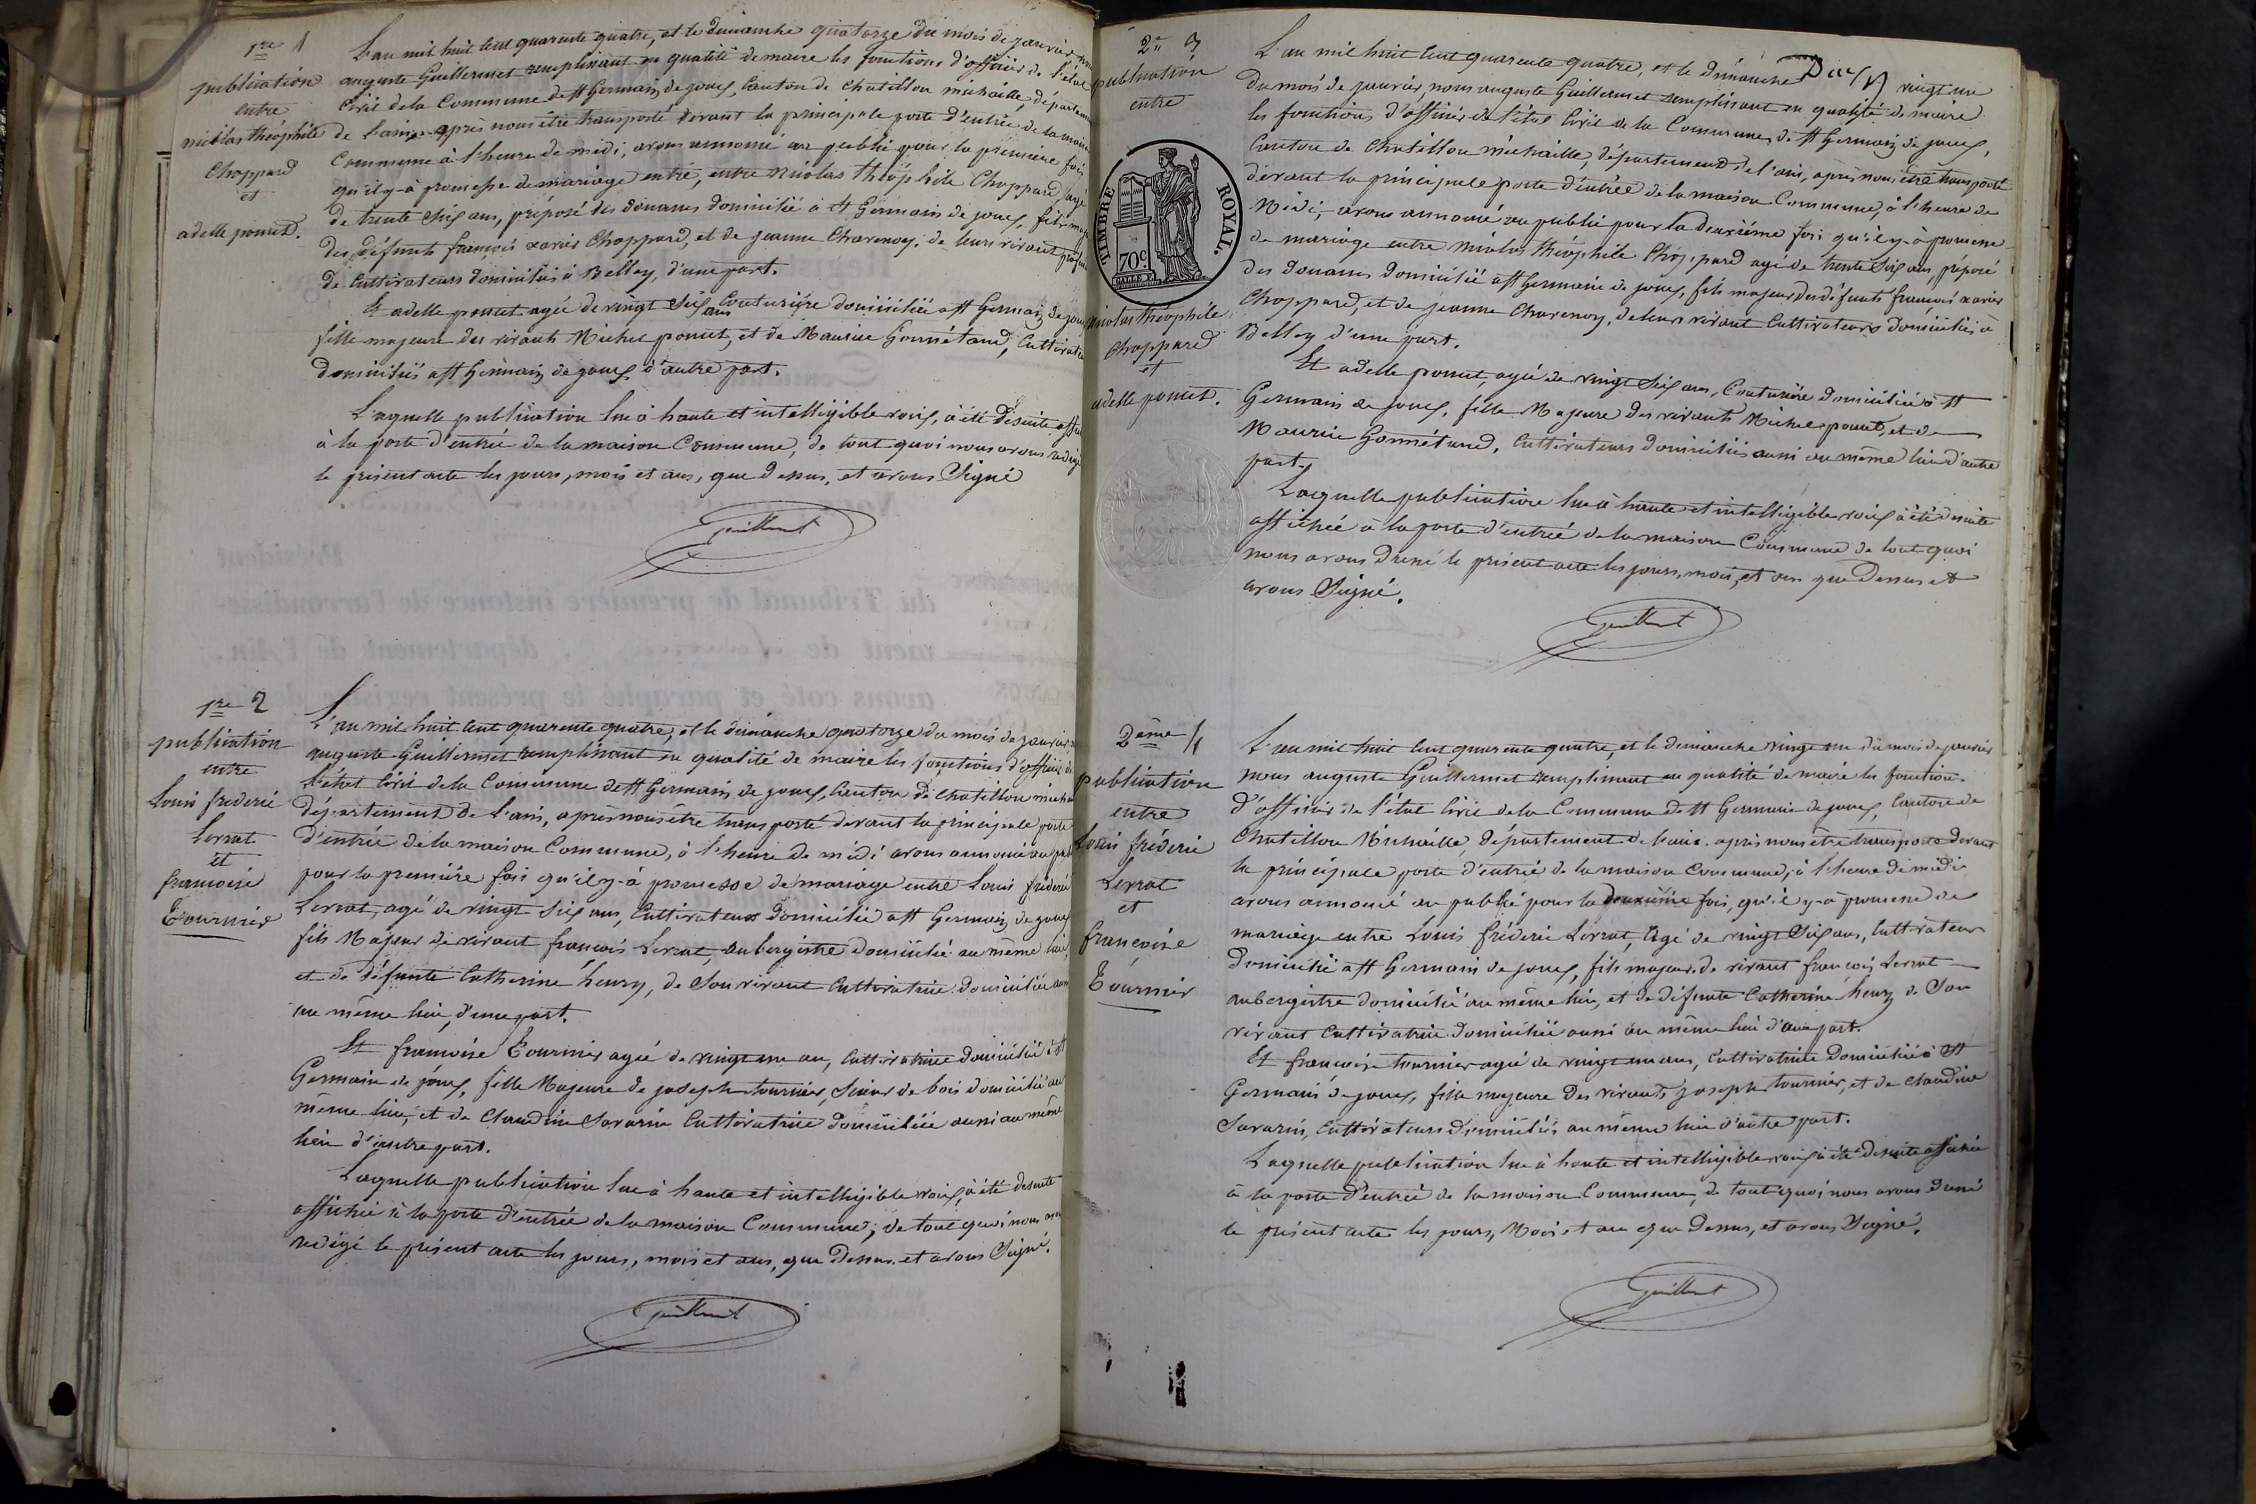 1re 1
publication
entre
nicolas théophile
Choppard
et
adelle poncet.
L'an mil huit cent quarante quatre, et le dimanche quatorze du mois de janvier,
auguste Guillermet remplissant en qualité de maire les fonctions d'officier de l'état
Civil de la Commune de st Germain de joux, Canton de Chatillon michaille, département
de l'ain, après nous être transporté devant la principale porte d'entrée de la maison
Commune à l'heure de midi, avons annoncé au public pour la première fois
qu'il y-à promesse de mariage entre, entre Nicolas théophile Choppard, agé
de trente six ans, préposé des douanes domicilié à st Germain de joux, fils
des défunts françois xavier Choppard, et de jeanne Charenoy, de leur vivant
de Cultivateurs domiciliés à Belley, d'une part.
Et adelle poncet agée de vingt six ans Couturière domiciliée à st Germain de joux
fille majeure des vivants Michel poncet, et de Maurise Gonnétand, Cultivateurs
domiciliés à st Germain de joux, d'autre part.
Laquelle publication lue à haute et intelligible voix, à été desuite
à la porte d'entrée de la maison Commune, de tout quoi nous avons rédigé
le présent acte les jours, mois et ans, que dessus, et avons Signé
Guillermet
1re 2
publication
entre
Louis frederic
Levrat
et
francoise
Tournier
L'an mil huit cent quarante quatre, et le dimanche quatorze du mois de janvier,
auguste Guillermet remplissant en qualité de maire les fonctions d'officier de
L'état Civil de la Commune de st Germain de joux, Canton de Chatillon
département de l'ain, après nous être transporté devant la principale porte
d'entrée de la maison Commune, à l'heure de midi avons annoncé au
pour la première fois qu'il y-à promesse de mariage entre Louis frederic
Levrat, agé de vingt six ans, Cultivateur domicilié à st Germain de joux
fils Majeur de vivant francois Levrat, aubergiste domicilié au même lieu,
et de défunte Catherine henry, de Son vivant Cultivatrice domiciliée aussi
au même lieu, d'une part.
Et francoise Tournier agée de vingt un an, Cultivatrice domiciliée à st
Germain de joux, fille Majeure de joseph tournier, Scieur de bois domicilié au
même lieu, et de Claudine Savarin Cultivatrice domiciliée aussi au même
lieu d'autre part.
Laquelle publication lue à haute et intelligible voix, à été desuite
affichée à la porte d'entrée de la maison Commune; de tout quoi nous avons
rédigé le présent acte les jours, mois et ans, que dessus, et avons Signé.
Guillermet
2e 3
publication
entre
TIMBRE ROYAL.
70c
nicolas théophile
Choppard
et
adelle poncet.
L'an mil huit cent quarante quatre, et le dimanche vingt un
du mois de janvier, nous auguste Guillermet remplissant en qualité de maire
les fonctions d'officier de l'état Civil de la Commune de st Germain de joux,
Canton de Chatillon michaille, département de l'ain, après nous être transporté
devant la principale porte d'entrée de la maison Commune, à l'heure de
Midi, avons annoncé au public pour la deuxième fois qu'il y-à promesse
de mariage entre nicolas théophile Choppard agé de trente Six ans, préposé
des douanes domicilié à st Germain de joux, fils majeur des défunts françois xavier
Choppard, et de jeanne Charenoy, de leur vivant Cultivateurs domiciliés à
Belley d'une part.
Et adelle poncet, agée de vingt Six ans, Couturière domiciliée à st
Germain de joux, fille Majeure des vivants Michel poncet, et de
Maurise Gonnétand, Cultivateurs domiciliés aussi au même lieu d'autre
part.
Laquelle publication lue à haute et intelligible voix à été desuite
affichée à la porte d'entrée de la maison Commune de tout quoi
nous avons dressé le présent acte les jours, mois, et an que Dessus et
avons Signé.
Guillermet
2ème 4
publication
entre
Louis fréderic
Levrat
et
françoise
Tournier
L'an mil huit cent quarante quatre, et le dimanche vingt un du mois de janvier
nous auguste Guillermet remplissant en qualité de maire les fonctions
d'officier de l'état Civil de la Commune de st Germain de joux, Canton de
Chatillon Michaille, département de l'ain, après nous être transporté devant
la principale porte d'entrée de la maison Commune, à l'heure de midi
avons annoncé au public pour la deuxième fois, qu'il y-à promesse de
mariage entre Louis fréderic Levrat, agé de vingt Six ans, Cultivateur
domicilié à st Germain de joux, fils majeur de vivant françois Levrat
aubergiste domicilié au même lieu, et de défunte Catherine henry de Son
vivant Cultivatrice domiciliée aussi au même lieu d'une part.
Et françoise tournier agée de vingt un ans, Cultivatrice domiciliée à st
Germain de joux, fille majeure des vivants joseph tournier, et de Claudine
Savarin, Cultivateurs domiciliés au même lieu d'autre part.
Laquelle publication lue à haute et intelligible voix à été desuite affichée
à la porte d'entrée de la maison Commune, de tout quoi nous avons dressé
le présent acte les jours, Mois et an que dessus, et avons Signé.
Guillermet